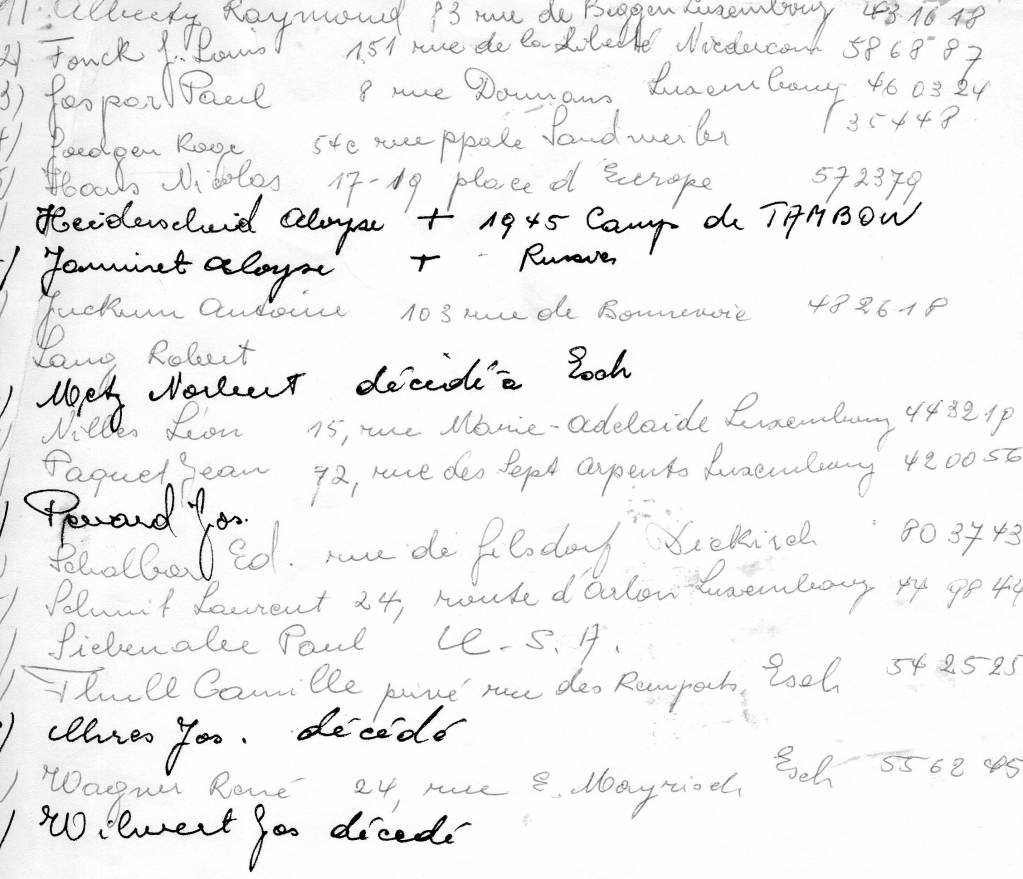 Raymond 83 rue de Beggen Luxembourg 43 16 18
2) Fonck J. Louis 151 rue de la Liberté Niedercorn 58 68 87
3) Jaspar Paul 8 rue Luxembourg 46 03 24
54c rue ppale Sandweiler 35448
Nicolas 17-19 place d'Europe 572379
Heiderscheid Aloyse + 1945 Camp de TAMBOW
Aloyse +
Antoine 103 rue de Bonnevoie 482618
Lang Robert
Metz Norbert décédé à Esch
Nilles Léon 15, rue Marie-Adelaide Luxembourg
Paquet Jean 72, rue des Sept Arpents Luxembourg 420056
Jos.
Ed. rue de Gilsdorf Diekirch 803743
Schmit Laurent 24, route d'Arlon Luxembourg 44 98 44
Siebenaler Paul U.S.A.
Thull Camille privé rue des Remparts Esch 542525
Jos. décédé
Wagner René 24, rue E. Mayrisch Esch 5562 45
Wilwert Jos décédé